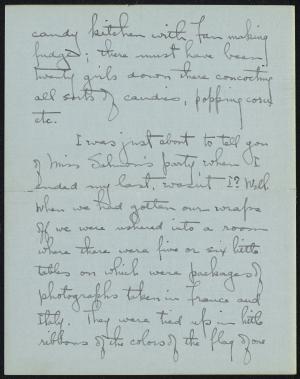 candy kitchen with Fan making
fudge; there must have been
twenty girls down there concocting
all sorts of candies, popping corn,
etc.
I was just about to tell you
of Miss party when I
ended my last, wasn't I? Well
when we had gotten our wraps
off we were ushered into a room
where there were five or six little
tables on which were packages of
photographs taken in France and
Italy. They were tied up in little
ribbons of the colors of the flag of one